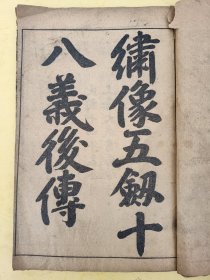 繡像五劍十
八義後傳